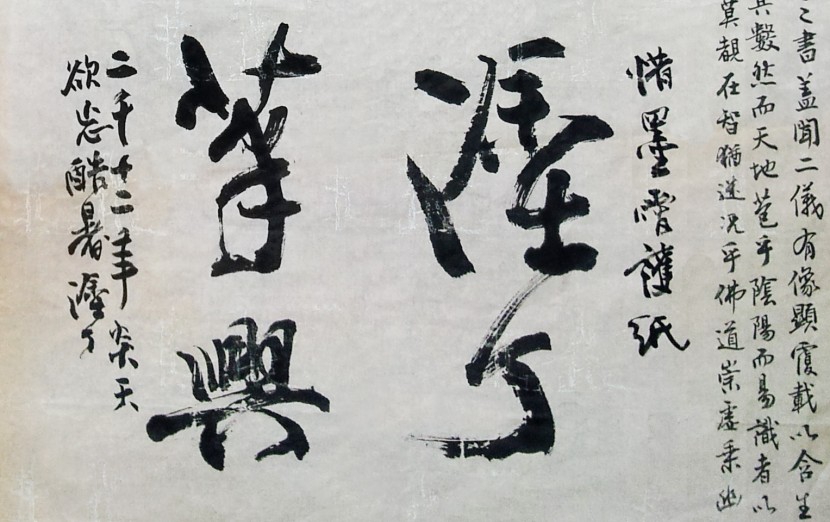 之書盖聞二儀有像顯覆載以含生
其數然而天地苞乎陰陽而易識者以
莫覩在智猶迷況乎佛道崇虛乘幽
惜墨護紙
了
筆興
二千十二年炎天
欲忘酷暑